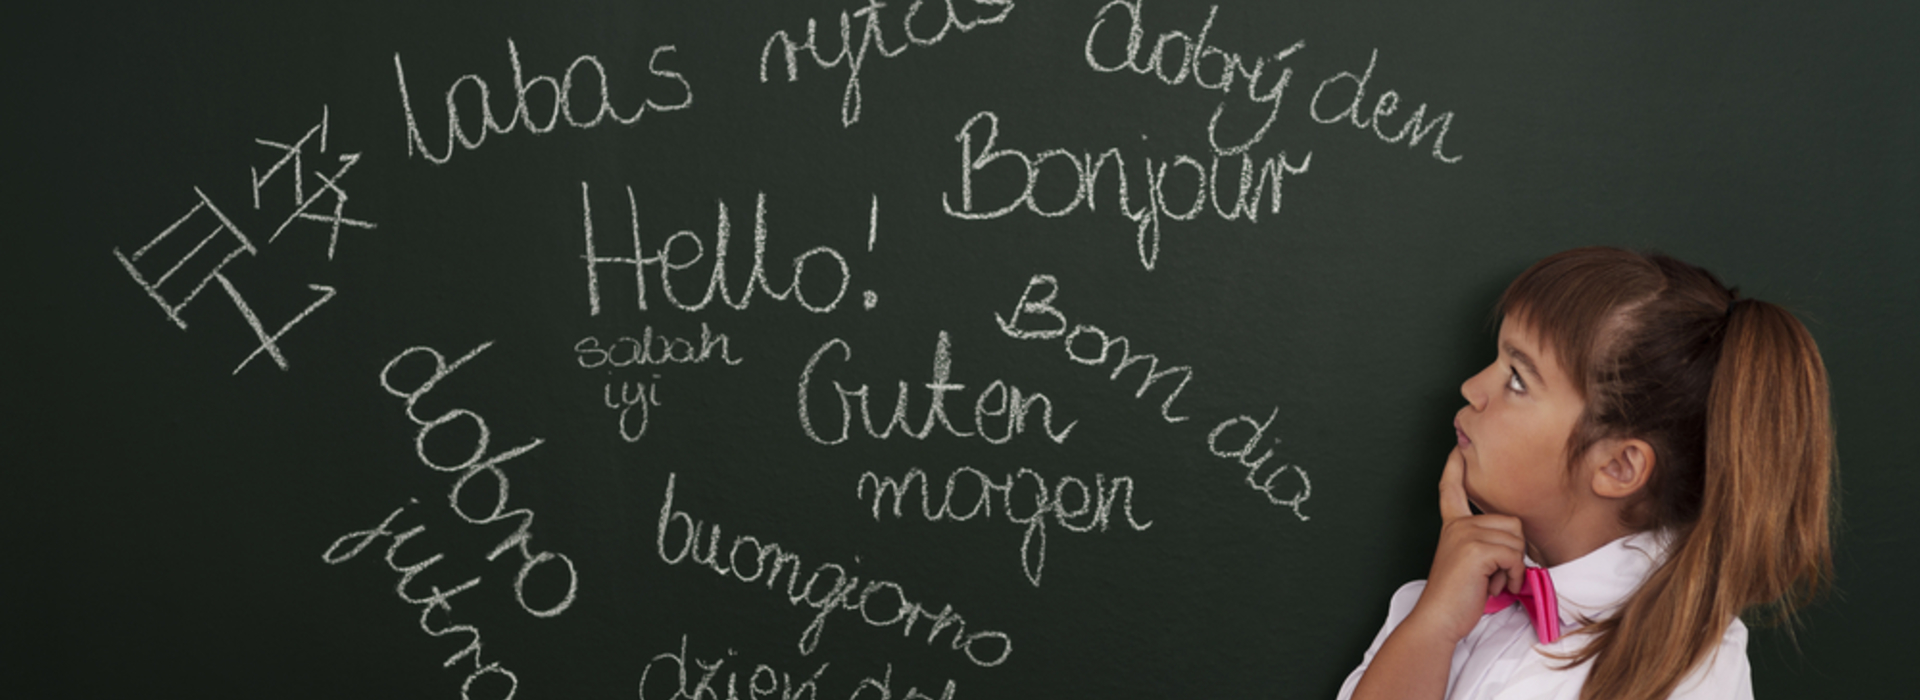 labas rytas
dobrý den
Bonjour
Hello!
sabah
iyi
Bom dia
Guten
magen
dobro
jutro
buongiorno
dzień